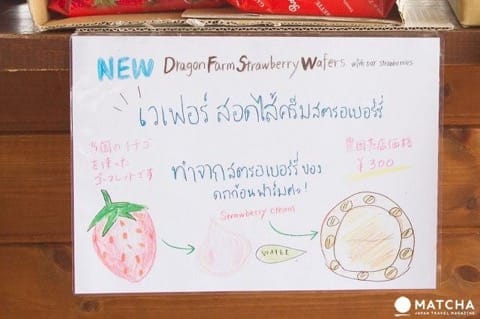 NEW Dragon Farm Strawberry Wafers with our strawberries
เวเฟอร์ สอดไส้ครีมสตรอเบอร์รี่
当園のイチゴ
を使った
ゴーフレットです
ทำจากสตรอเบอร์รี่ของ
ดราก้อนฟาร์มค่ะ!
農園売店価格
¥300
Strawberry cream
WAFER
MATCHA
JAPAN TRAVEL MAGAZINE